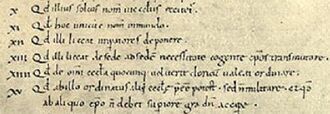 X Qd illius solius nom̄ in ecclis recitet̄.
XI Qd hoc unicū ē nom̄ in mundo.
XII Qd illi liceat impatores deponere.
XIII Qd illi liceat de sede ad sedē necessitate cogente ep̄os transmutare.
XIIII Qd de omī eccła quocūq; voluerit clericū valeat ordinare.
XV Qd ab illo ordinatus alii eccłe preesse potest, sed n̄ militare. et qd
ab aliquo ep̄o n̄ debet superiorē gradū accipere.